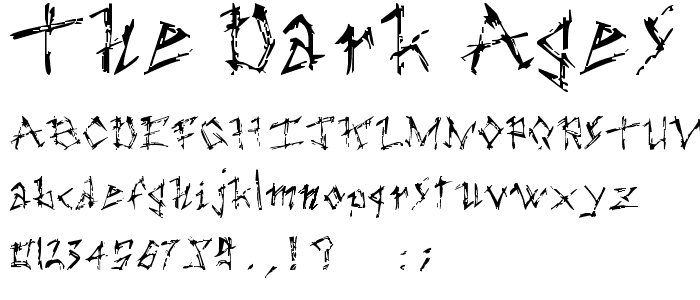 the Dark Ages
ABCDEFGHIJKLMNOPQRSTUV
abcdefghijklmnopqrstuvwxyz
0123456789.,!? :;